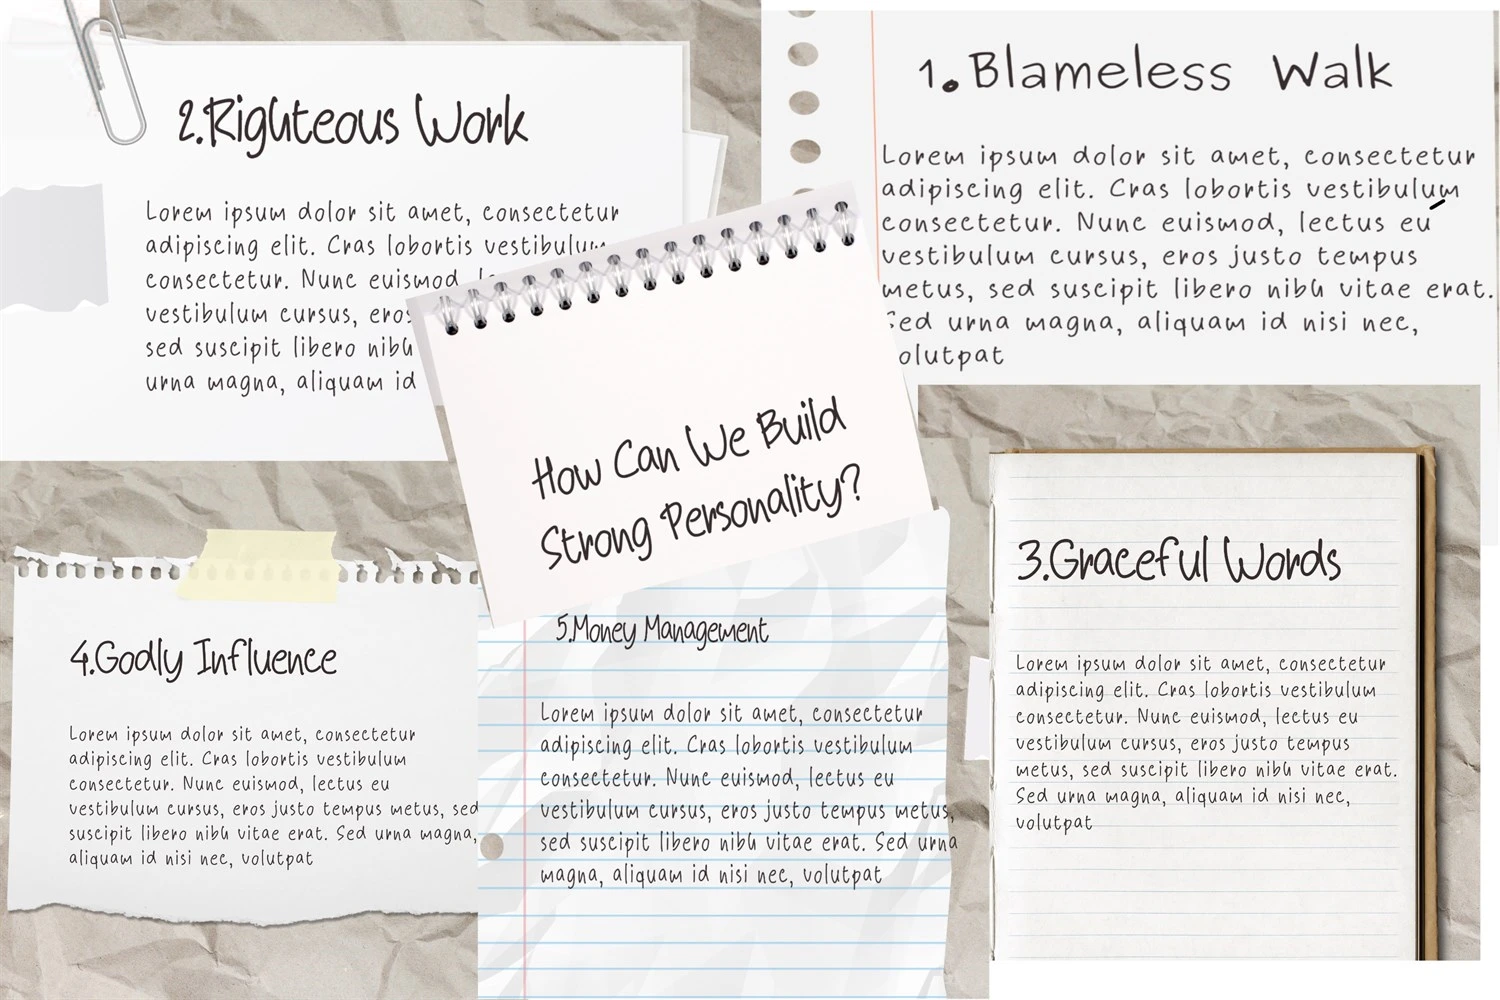 How Can We Build
Strong Personality?
1. Blameless Walk
Lorem ipsum dolor sit amet, consectetur
adipiscing elit. Cras lobortis vestibulum
consectetur. Nunc euismod, lectus eu
vestibulum cursus, eros justo tempus
metus, sed suscipit libero nibh vitae erat.
Sed urna magna, aliquam id nisi nec,
olutpat
2.Righteous Work
Lorem ipsum dolor sit amet, consectetur
adipiscing elit. Cras lobortis vestibulum
consectetur. Nunc euismod
vestibulum cursus, eros
sed suscipit libero nibh
urna magna, aliquam id
3.Graceful Words
Lorem ipsum dolor sit amet, consectetur
adipiscing elit. Cras lobortis vestibulum
consectetur. Nunc euismod, lectus eu
vestibulum cursus, eros justo tempus
metus, sed suscipit libero nibh vitae erat.
Sed urna magna, aliquam id nisi nec,
volutpat
4.Godly Influence
Lorem ipsum dolor sit amet, consectetur
adipiscing elit. Cras lobortis vestibulum
consectetur. Nunc euismod, lectus eu
vestibulum cursus, eros justo tempus metus, sed
suscipit libero nibh vitae erat. Sed urna magna,
aliquam id nisi nec, volutpat
5.Money Management
Lorem ipsum dolor sit amet, consectetur
adipiscing elit. Cras lobortis vestibulum
consectetur. Nunc euismod, lectus eu
vestibulum cursus, eros justo tempus metus,
sed suscipit libero nibh vitae erat. Sed urna
magna, aliquam id nisi nec, volutpat